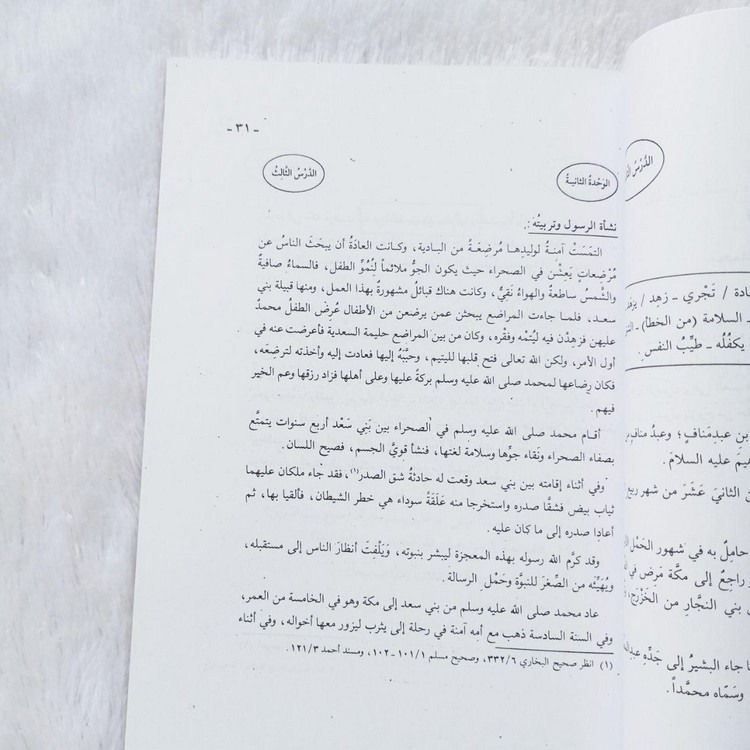 - ٣١ -
الوَحْدةُ الثانيةُ
الدَّرْسُ الثَّالِثُ
نشأة الرسول وتربيتُه :
التمَسَتْ آمِنةُ لوليدِهـا مُرضِعَـةً من البادية، وكـانت العادَةُ أن يبحَثَ الناسُ عن
مُرْضِعاتٍ يَعِشْن في الصحراء حيث يكون الجوُّ ملائماً لِنُمُوِّ الطفل، فالسماءُ صافيةٌ
والشَّمسُ ساطعةٌ والهواءُ نَقِيٌّ، وكانت هناك قبائلُ مشهورةٌ بهذا العمل، ومنها قبيلة بني
سعـد، فلمـا جاءت المراضع يبحثن عمن يرضعن من الأطفال عُرِضَ الطفلُ محمدٌ
عليهن فزَهِدْنَ فيه ليُتْمْه وفقْره، وكان من بين المراضِع حليمة السعدية فأعرضت عنه في
أول الأمر، ولكن الله تعالى فتح قلبها لليتيم، وحبَّبَهُ إليها فعادت إليه وأخذته لترضِعَه،
فكان رضاعها لمحمد صلى الله عليه وسلم بركةً عليها وعلى أهلها فزاد رزقها وعم الخير
فيهم .
أقـام محمد صلى الله عليه وسلم في الصحراء بين بَنِي سَعْد أربع سنوات يتمتَّع
بصفاء الصحراء ونَقاء جوِّها وسلامة لغتها، فنشأ قويَّ الجسم، فصيح اللسان .
وفي أثناء إقامته بين بني سعد وقعت له حادثةُ شق الصدر(١)، فقد جاء ملكان عليهما
ثياب بيض فشقَّا صدره واستخرجا منه عَلَقَةً سوداء هي خطر الشيطان، فألقيا بها، ثم
أعادا صدره إلى ما كان عليه .
وقد كرَّم الله رسوله بهذه المعجزة ليبشر بنبوته، ويَلْفِتَ أنظارَ الناس إلى مستقبله،
ويُهَيِّئه من الصِّغَر للنبوَّة وحَمْلِ الرسالة .
عاد محمد صلى الله عليه وسلم من بني سعد إلى مكة وهو في الخامسة من العمر،
وفي السنة السادسة ذهب مع أمه آمنة في رحلة إلى يثرب ليزور معها أخواله، وفي أثناء
(١) انظر صحيح البخاري ٣٣٢/٦، وصحيح مسلم ١٠١/١ - ١٠٢، ومسند أحمد ١٢١/٣ .
الدَّرْسُ
ادة / تَجْري ـ زهِد /
ـ السلامة (من الخطأ) ـ
يكفُلُه ـ طيِّبُ النفس .
بن عبدِمَنافٍ؛ وعبدُ مناف
هيمَ عليه السلامَ .
الثانيَ عَشَرَ من شهر ربيع
حامِلٌ به في شهور الحَمْلِ
راجِعٌ إلى مكَّة مَرِض في
بني النجَّار من الخَزْرَج
ا جاء البشيرُ إلى جَدِّهِ
وسَمَّاه محمَّداً .